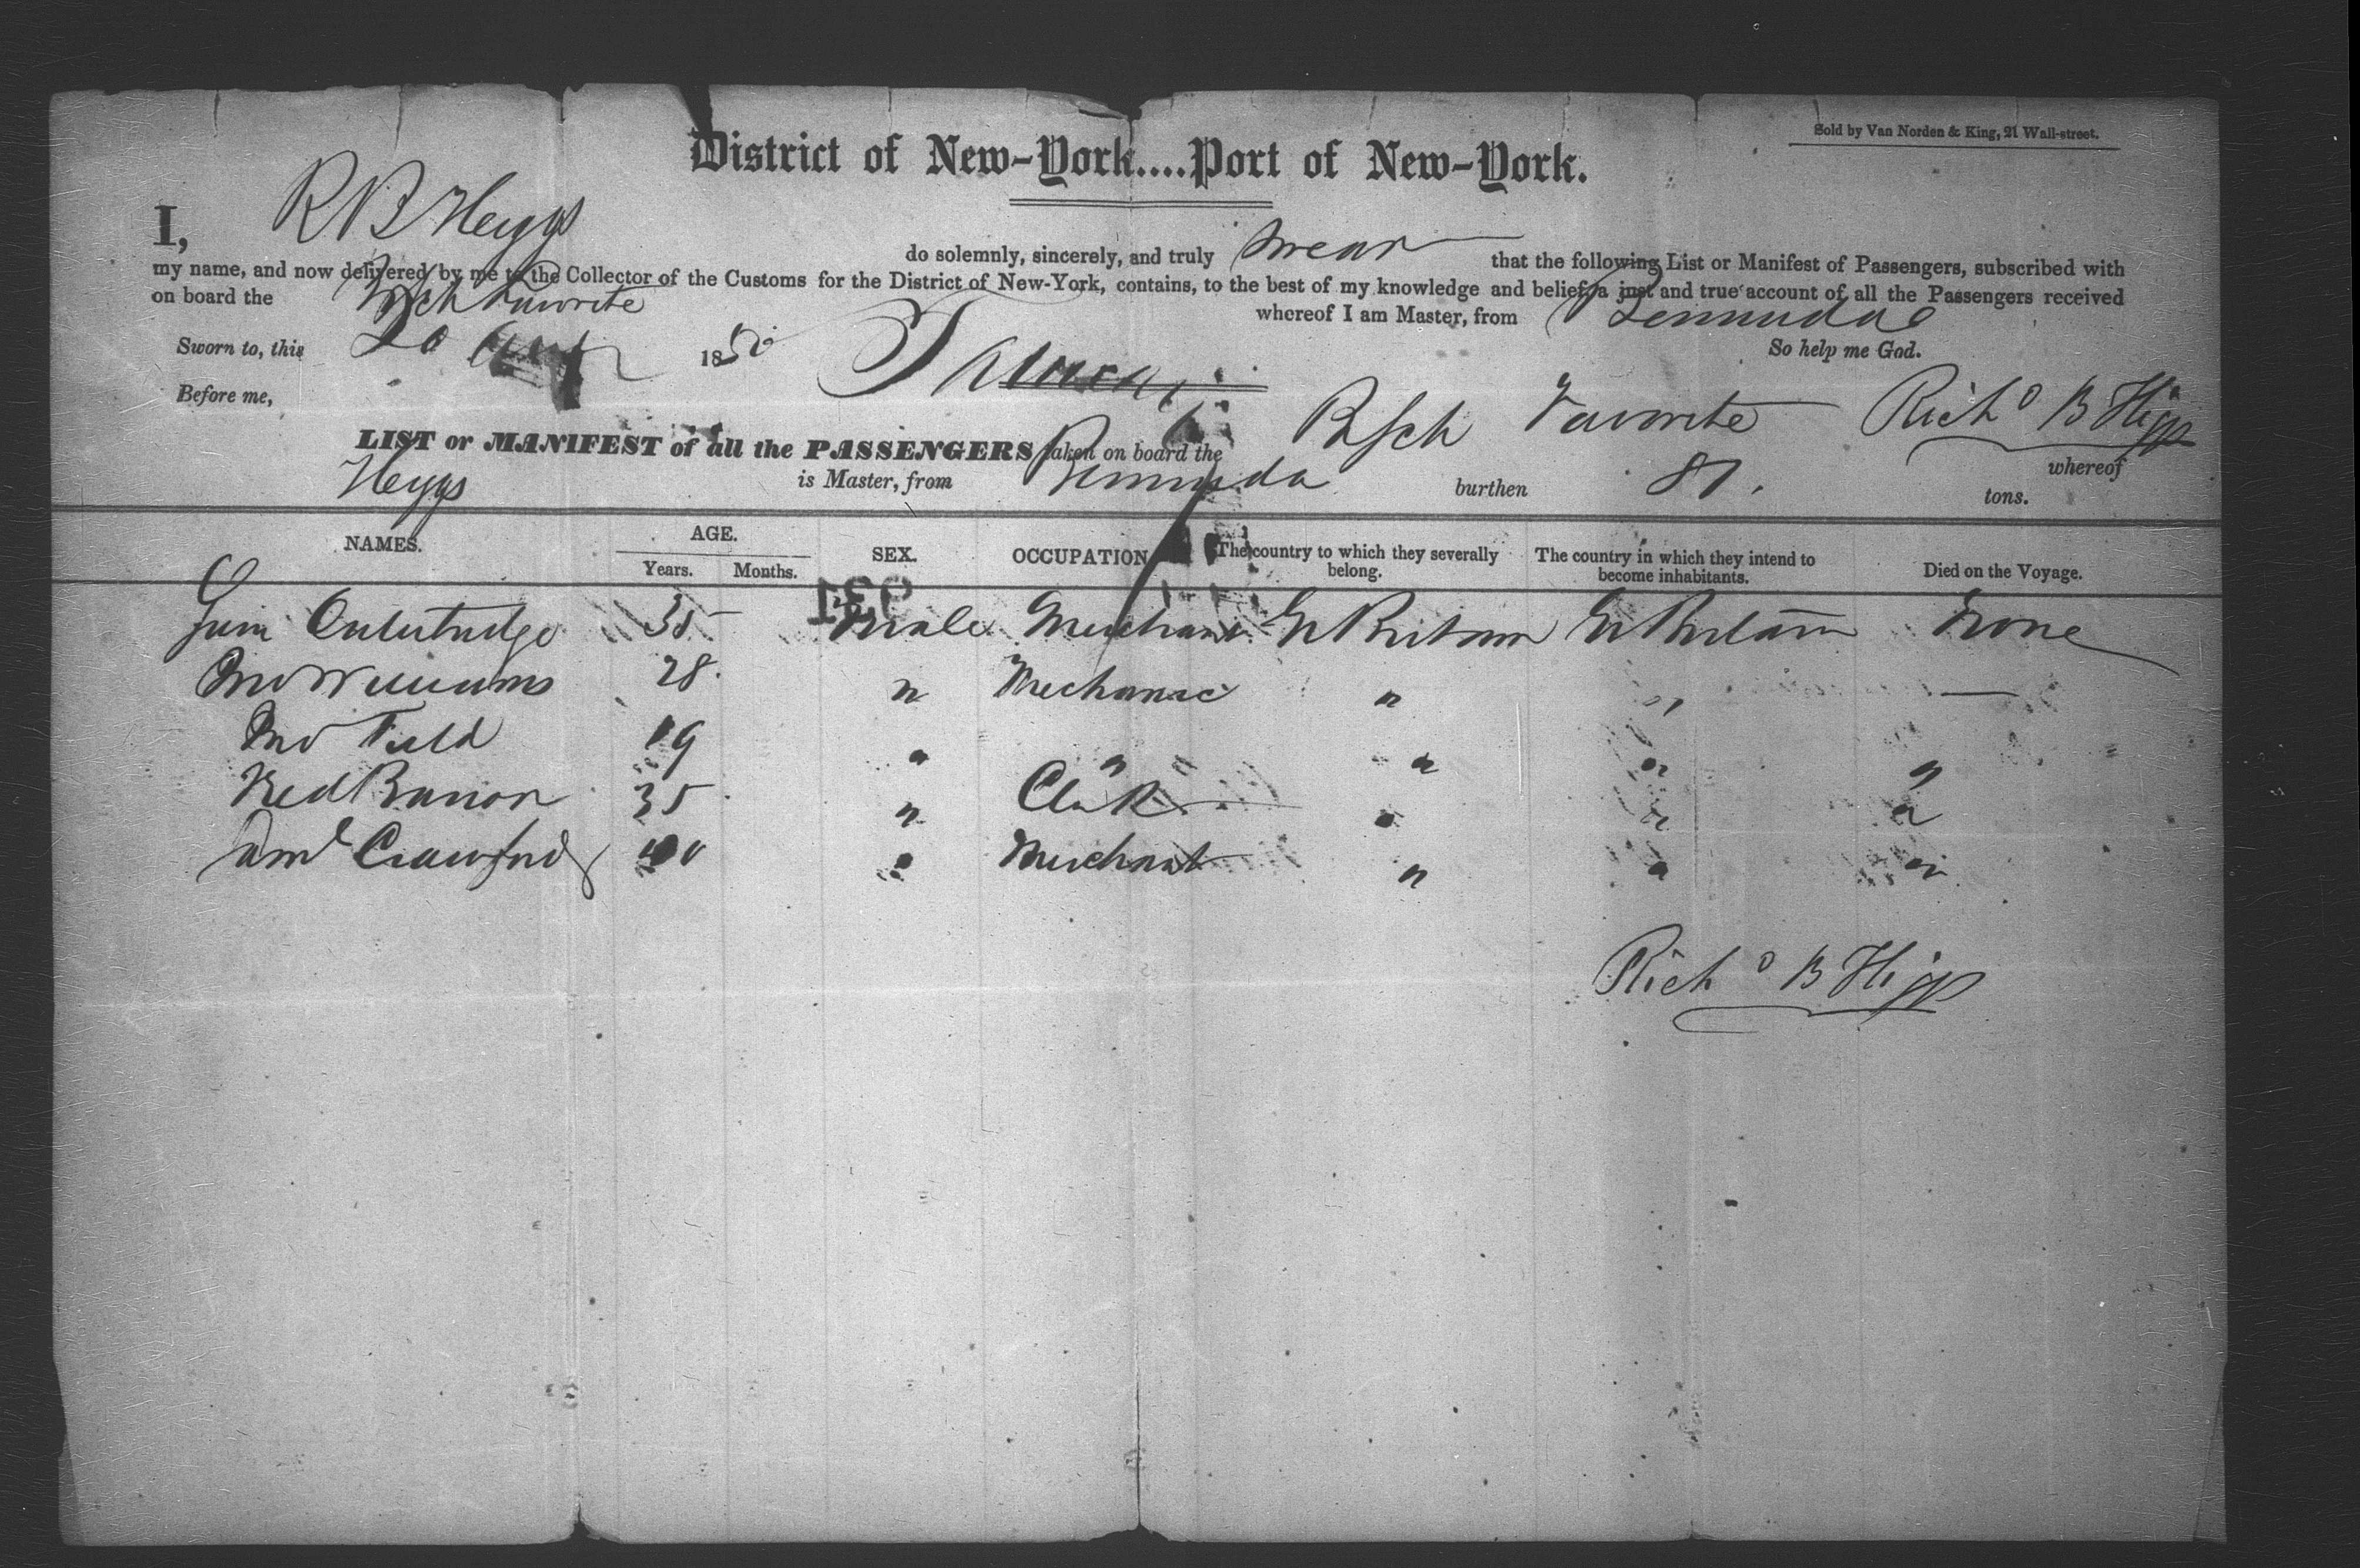 Sold by Van Norden & King, 21 Wall-street.
District of New-York....Port of New-York.
I, R B Heggs do solemnly, sincerely, and truly swear that the following List or Manifest of Passengers, subscribed with
my name, and now delivered by me to the Collector of the Customs for the District of New-York, contains, to the best of my knowledge and belief, a just and true account of all the Passengers received
on board the Favorite whereof I am Master, from Bermuda
Sworn to, this 20 1850 So help me God.
Before me, Richd B Higgs
LIST or MANIFEST of all the PASSENGERS taken on board the B Sch Favorite whereof
Heggs is Master, from Bermuda burthen 87. tons.
NAMES. AGE. SEX. OCCUPATION The country to which they severally belong. The country in which they intend to become inhabitants. Died on the Voyage.
Years. Months.
931
35 Male Merchant Gr Britain Gr Britain None
Jno Williams 28. " Mechanic " " —
Jno Field 19 " " " " "
35 " Clerk " " "
Crawford " Merchant " " "
Richd B Higgs